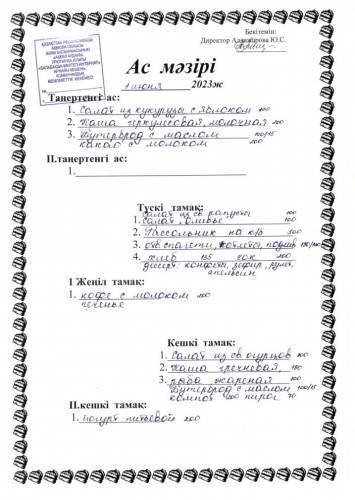 Бекітемін:
Директор Ю.С.
Ас мәзірі
1 июня 2023ж
Таңертеңгі ас:
1. Салат из кукурузы с яблоком 100
2. Каша геркулесовая, молочная 200
3. Бутерброд с маслом 100/15
какао с молоком 200
ІІ.таңертеңгі ас:
1.
Түскі тамақ:
Салат из св капусты 100
1. Салат оливье 100
2. Рассольник на к/б 500
3. отв. спагетти, котлеты, подлив
4. хлеб 135 сок 200
десерт: конфеты, зефир, рулет,
апельсин
І Жеңіл тамақ:
1. кофе с молоком 200
печенье
Кешкі тамақ:
1. Салат из св огурцов 100
2. Каша гречневая, 150
3. рыба жареная 100
Бутерброд с маслом 100/15
компот 200 пирог 70
ІІ.кешкі тамақ:
1. йогурт питьевой 200